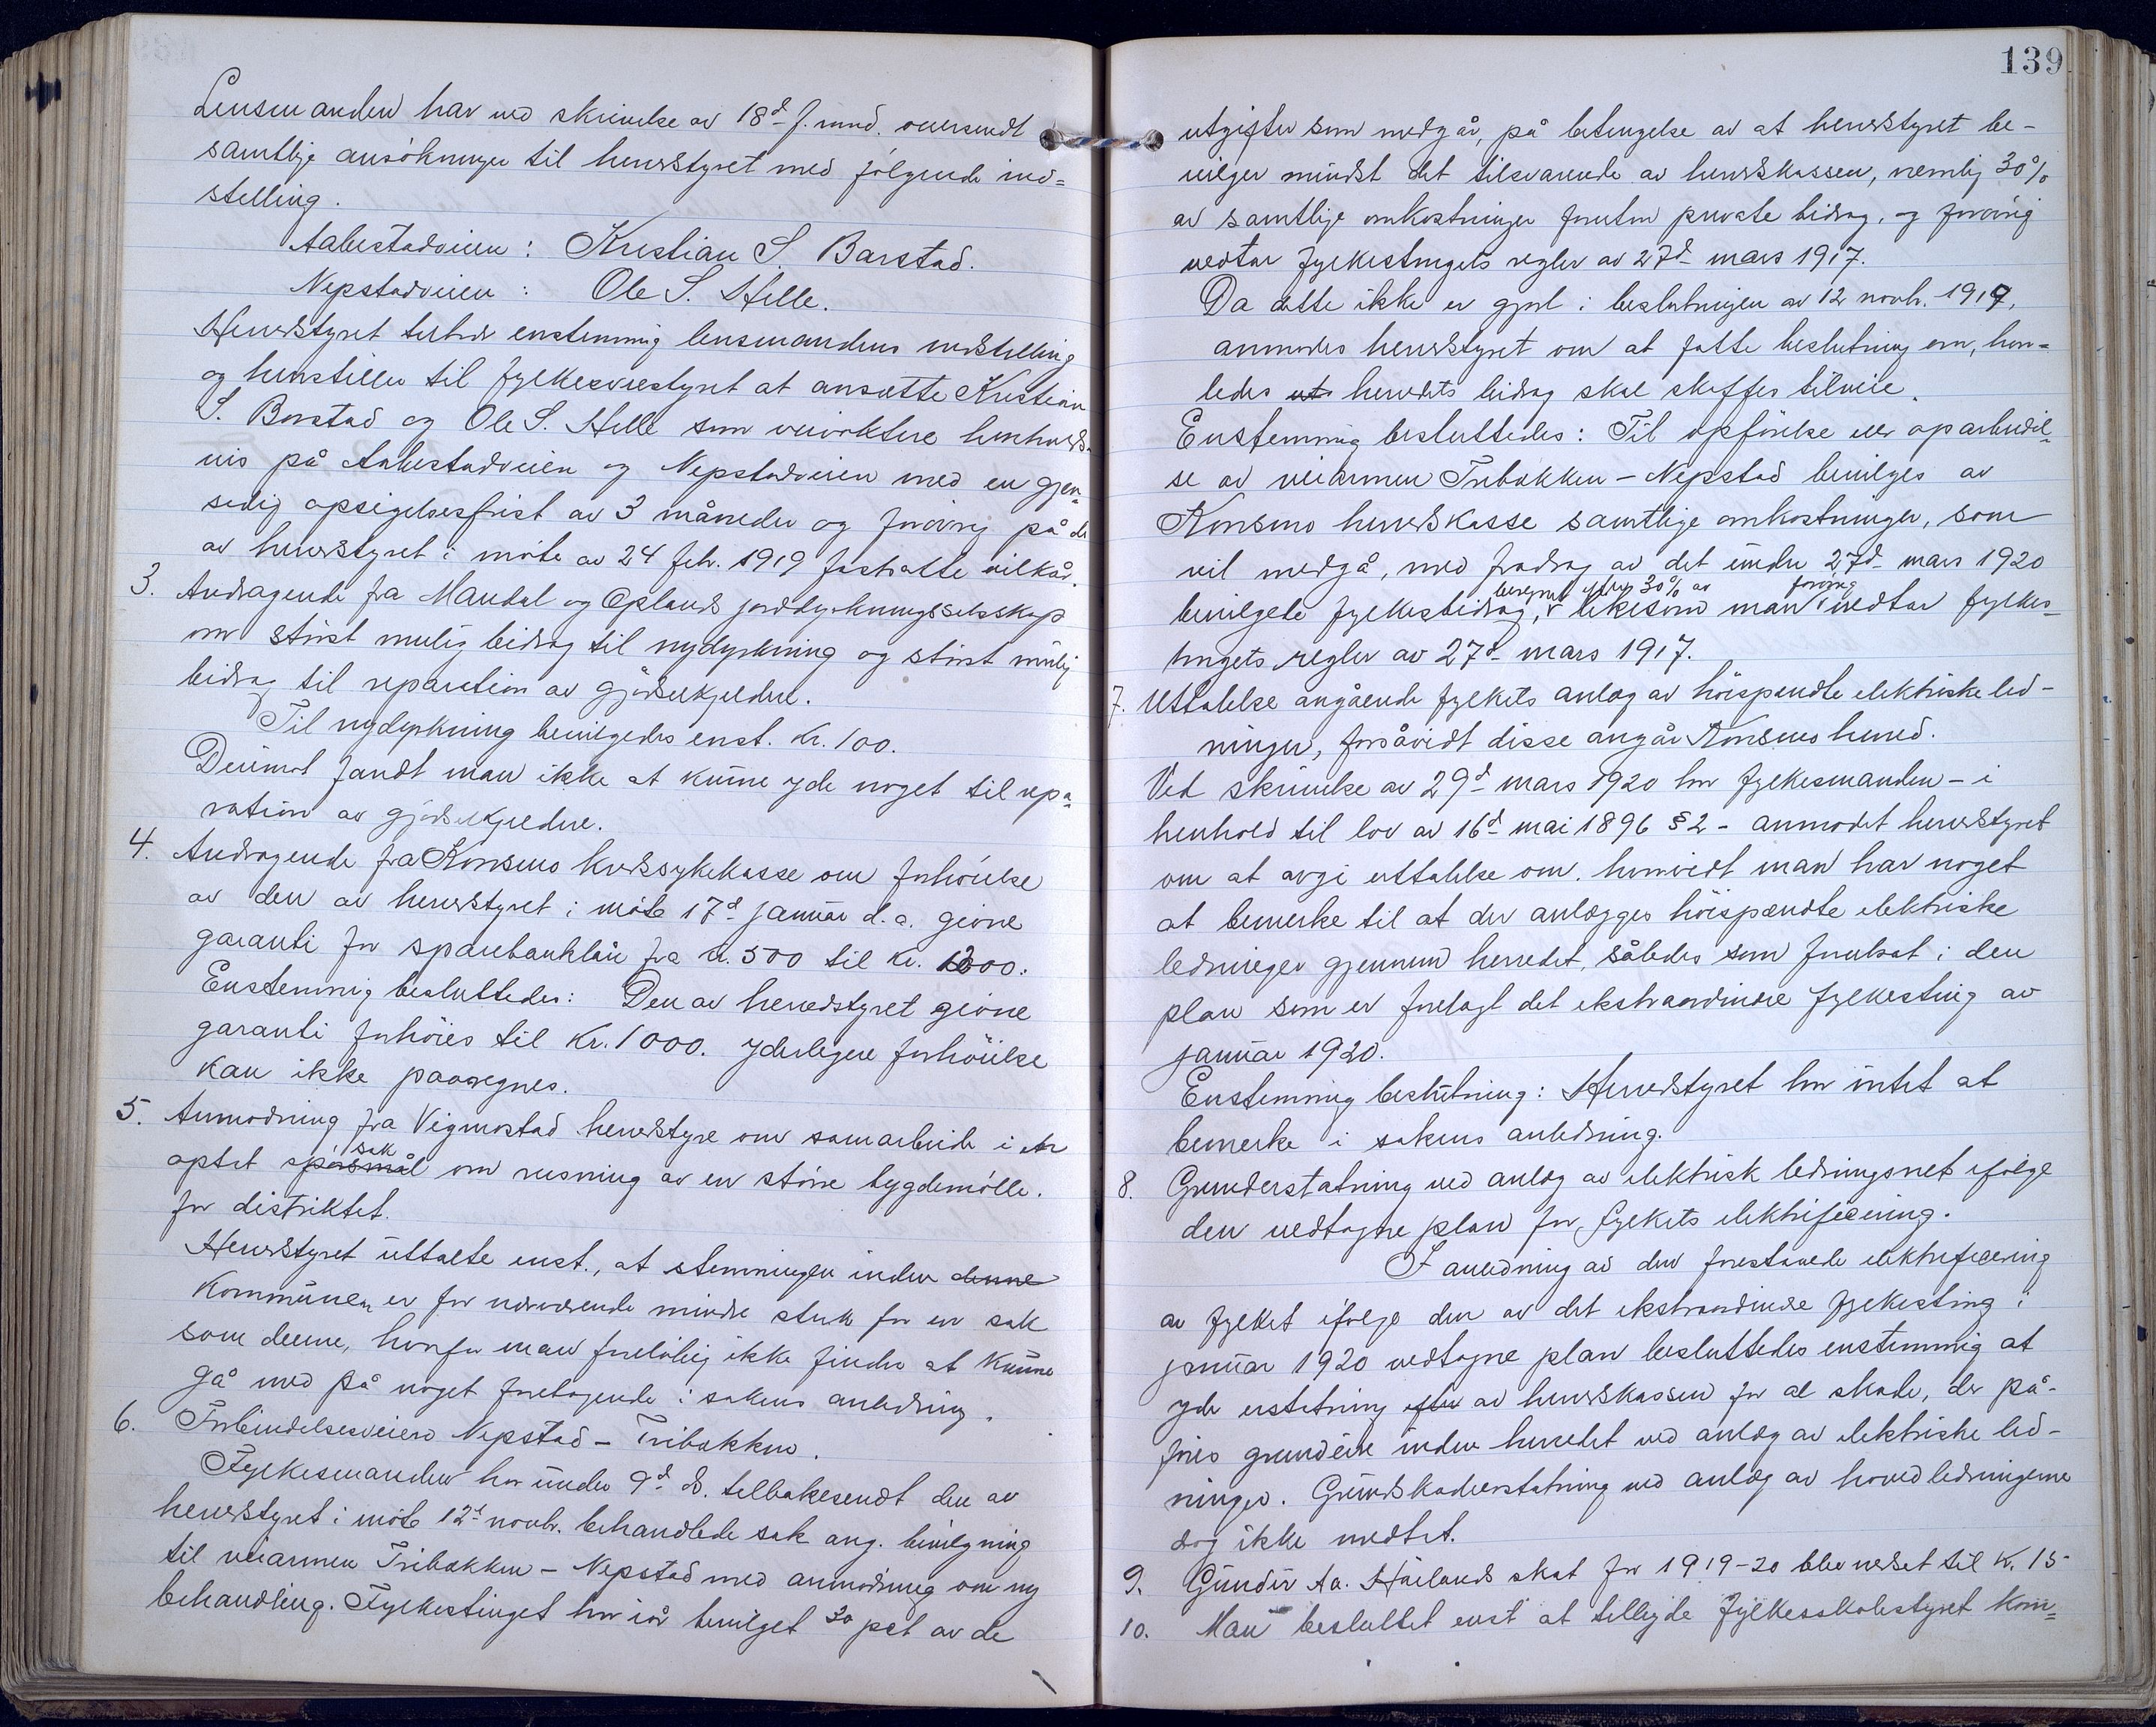 Lensmanden har ved skrivelse av 18d f. mnd. oversendt
samtlige ansökninger til herredstyret med fölgende ind=
stilling.
Aabestadveien: Kristian S. Barstad.
Nepstadveien: Ole S. Helle.
Herredstyret tiltrær enstemmig lensmandens indstilling
og henstiller til fylkesveistyret at ansætte Kristian
S. Barstad og Ole S. Helle som veivoktere henholds-
vis på Aabestadveien og Nepstadveien med en gjen=
sidig opsigelsesfrist av 3 måneder og forövrig på de
av herredstyret i möte av 24 febr. 1919 fastsatte vilkår.
3. Andragende fra Mandal og Oplands jorddyrkningsselskap
om störst mulig bidrag til nydyrkning og störst mulig
bidrag til reparation av gjödselkjeldere.
Til nydyrkning bevilgedes enst. Kr. 100.
Derimot fandt man ikke at kunne yde noget til repa=
ration av gjödselkjeldere.
4. Andragende fra Konsmo kredssykekasse om forhöielse
av den av herredstyret i möte 17d januar d.a. givne
garanti for sparebanklån fra kr. 500 til kr. 1200.
Enstemmig besluttedes: Den av herredstyret givne
garanti forhöies til Kr. 1000. Yderligere forhöielse
kan ikke paaregnes.
5. Anmodning fra Vigmostad herredstyre om samarbeide i en
optat spörsmål sak om reisning av en större bygdemölle
for distriktet.
Herredstyret uttalte enst., at stemningen inden denne
kommunen er for nærværende mindre sterk for en sak
som denne, hvorfor man forelöbig ikke finder at kunne
gå med på noget foretagende i sakens anledning.
6. Forbindelsesveien Nepstad – Tribakken.
Fylkesmanden har under 9d ds. tilbakesendt den av
herredstyret i möte 12d novbr. behandlede sak ang. bevilgning
til veiarmen Tribakken – Nepstad med anmodning om ny
behandling. Fylkestinget har iår bevilget 30 pct av de
139
utgifter som medgår, på betingelse av at herredstyret be-
vilger mindst det tilsvarende av herredskassen, nemlig 30%
av samtlige omkostninger foruten private bidrag, og forövrig
vedtar fylkestingets regler av 27d mars 1917.
Da dette ikke er gjort i beslutningen av 12 novbr. 1919,
anmodes herredstyret om at fatte beslutning om, hvor=
ledes ut herredets bidrag skal skaffes tilveie.
Enstemmig besluttedes: Til opförelse eller oparbeidel=
se av veiarmen Tribakken – Nepstad bevilges av
Konsmo herredskasse samtlige omkostninger, som
vil medgå, med fradrag av det under 27d mars 1920
beregnet efter 30% av forövrig
bevilgede fylkesbidrag, likesom man vedtar fylkes=
tingets regler av 27d mars 1917.
7. Uttalelse angående fylkets anlæg av höispændte elektriske led-
ninger, forsåvidt disse angår Konsmo herred.
Ved skrivelse av 29d mars 1920 har fylkesmanden – i
henhold til lov av 16d mai 1896 § 2 – anmodet herredstyret
om at avgi uttalelse om, hvorvidt man har noget
at bemerke til at der anlægges höispændte elektriske
ledninger gjennem herredet, således som forutsat i den
plan som er forelagt det ekstraordinære fylkesting av
januar 1920.
Enstemmig beslutning: Herredstyret har intet at
bemerke i sakens anledning.
8. Grunderstatning ved anlæg av elektrisk ledningsnet ifölge
den vedtagne plan for fylkets elektrificering.
I anledning av den forestående elektrificering
av fylket ifölge den av det ekstraordinære fylkesting i
januar 1920 vedtagne plan besluttedes enstemmig at
yde erstatning efter av herredskassen for al skade, der på-
föres grundeiere inden herredet ved anlæg av elektriske led-
ninger. Grundskadeerstatning ved anlæg av hovedledningerne
dog ikke medtat.
9. Gunder Aa. Hålands skat for 1919-20 blev nedsat til kr. 15-
10. Man besluttet enst at tillegde fylkesskolestyret Kom=